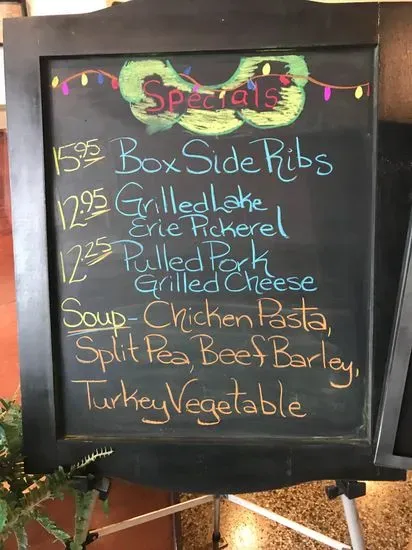 Specials
15.95 Box Side Ribs
12.95 Grilled Lake
Erie Pickerel
12.25 Pulled Pork
Grilled Cheese
Soup - Chicken Pasta,
Split Pea, Beef Barley,
Turkey Vegetable